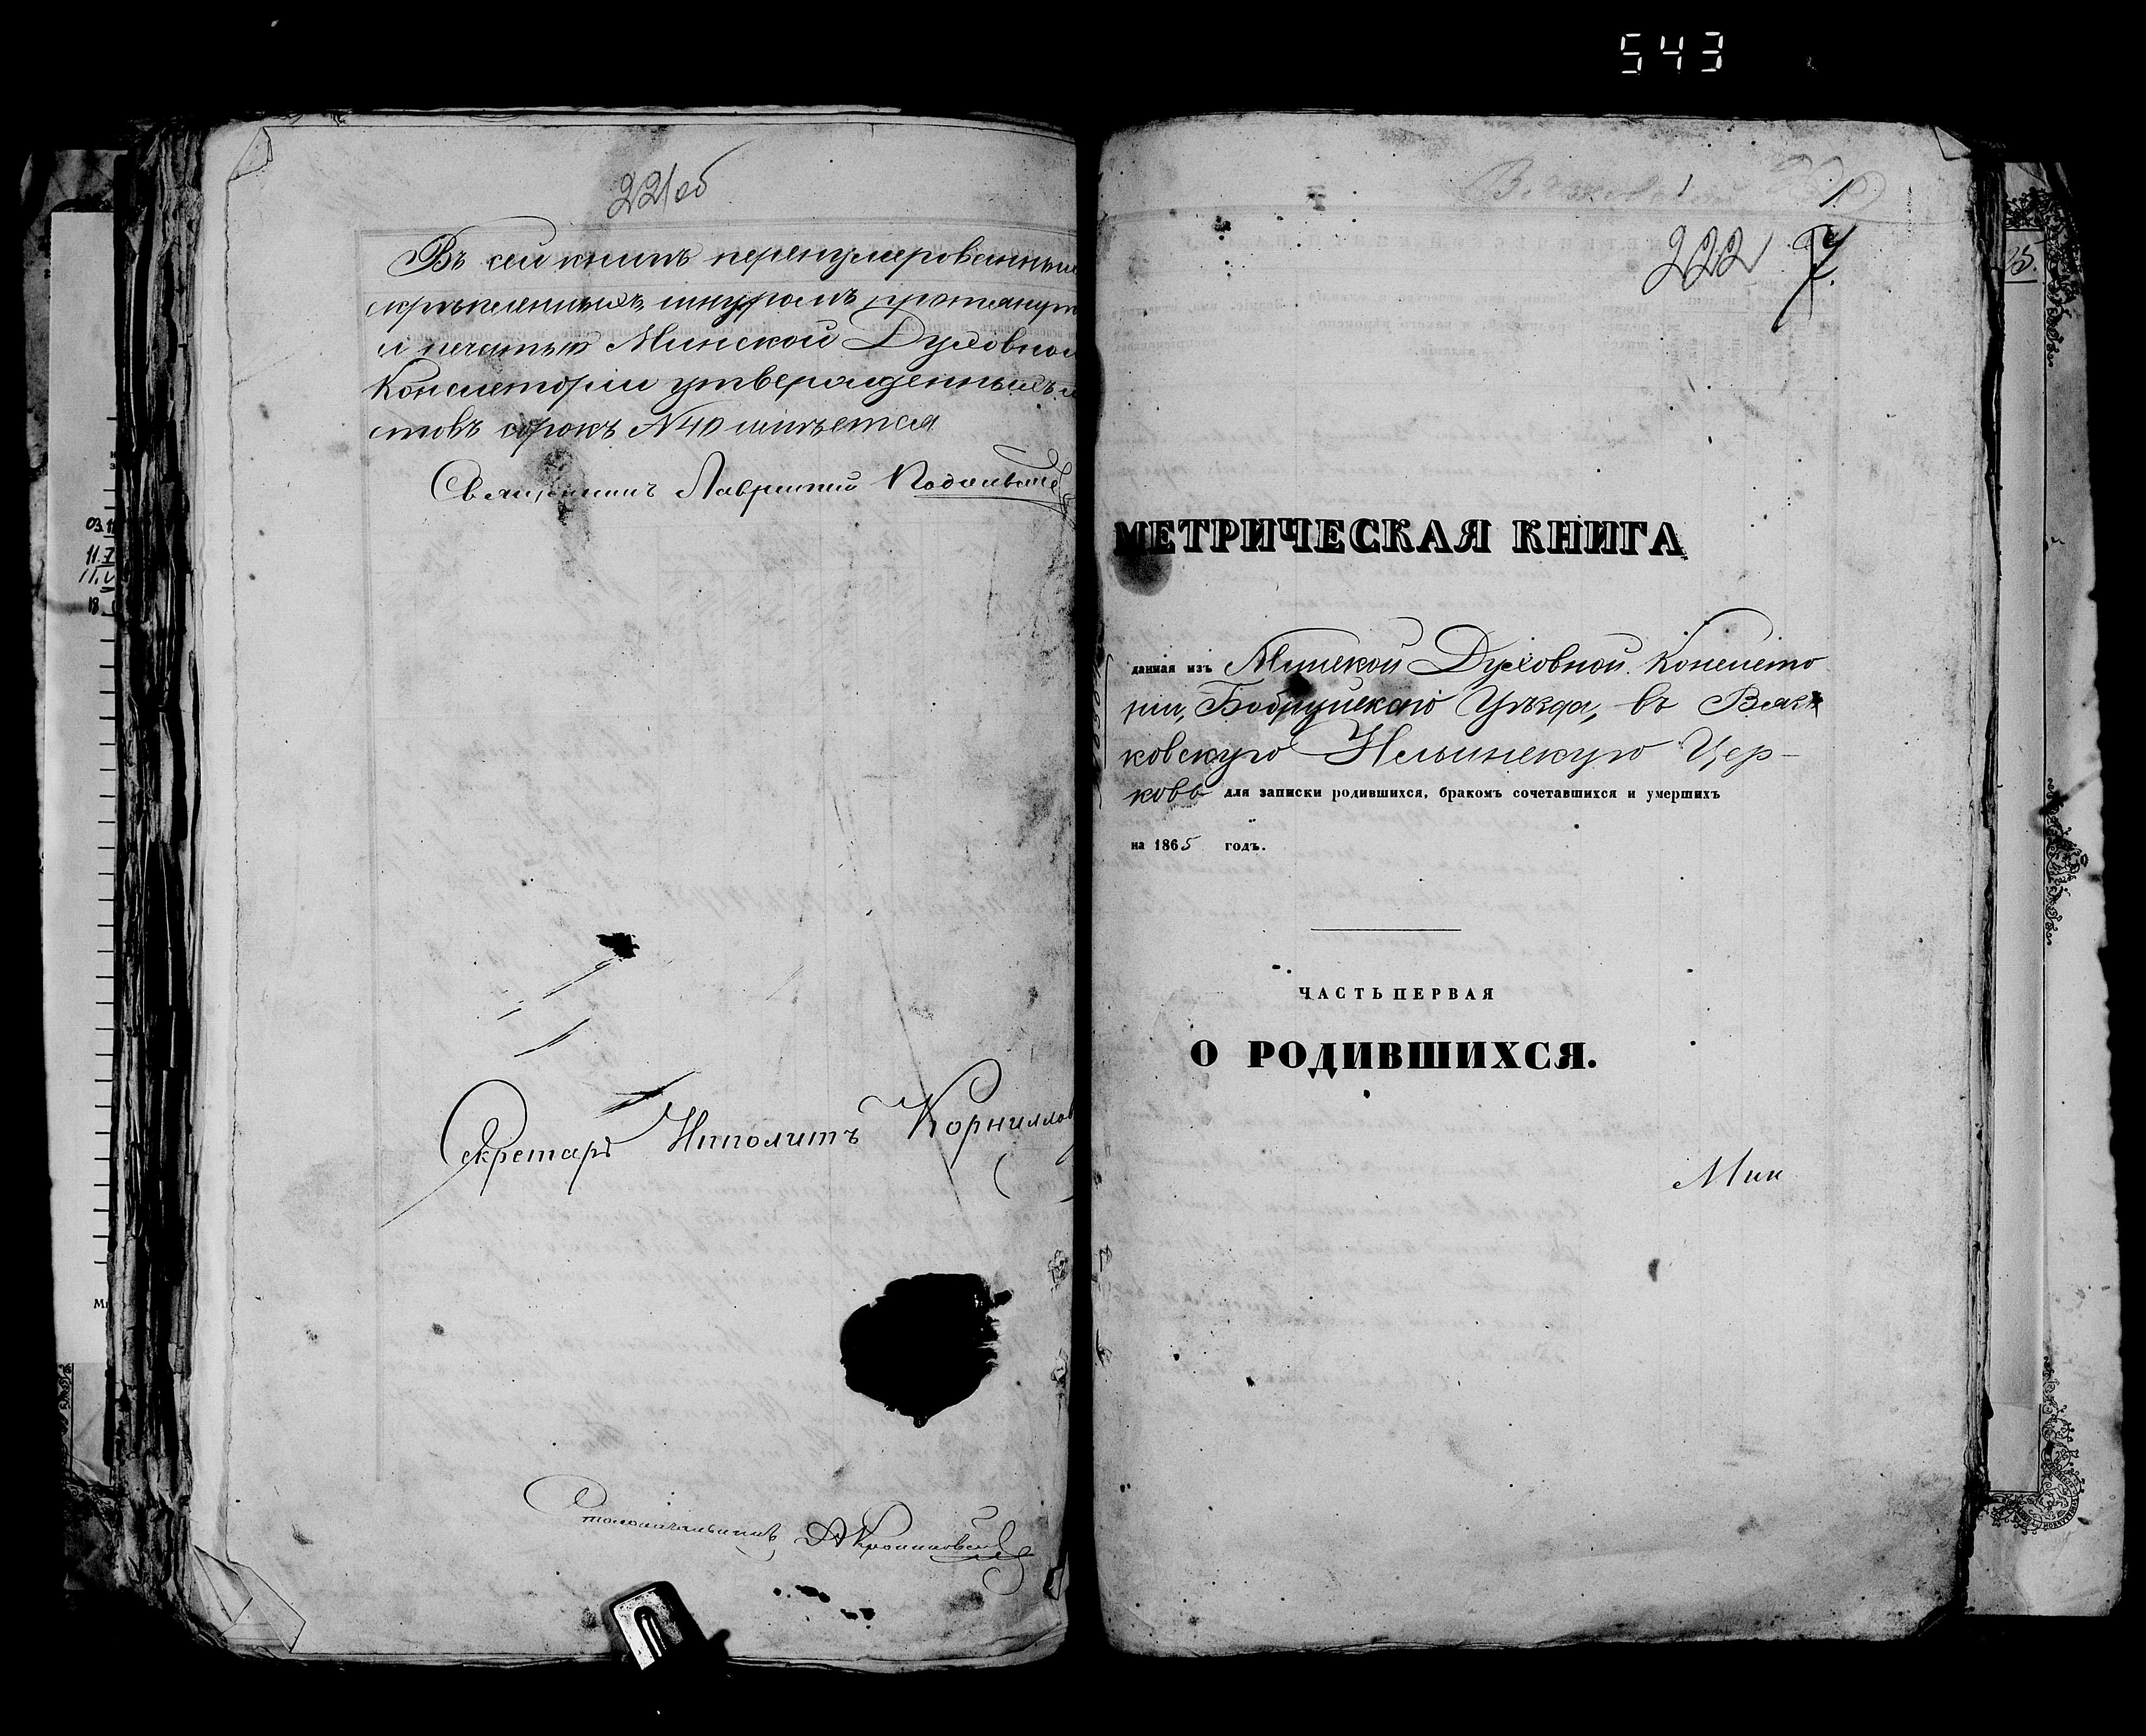 543
221об
Въ сей книгѣ перенумерованныхъ
скрѣпленныхъ шнуромъ протянут
и печатью Минской Духовной
Консисторіи утвержденныхъ ли
стовъ сорокъ №40 имѣется
Священникъ Лаврентій
Секретарь Ипполитъ Корнилов
Столоначальникъ
1
222
МЕТРИЧЕСКАЯ КНИГА
данная изъ Минской Духовной Консисто
ріи, Бобруйскаго Уѣзда, въ Вяз
ковскую Ильинскую Цер-
ковь для записки родившихся, бракомъ сочетавшихся и умершихъ
на 1865 годъ.
ЧАСТЬ ПЕРВАЯ
О РОДИВШИХСЯ.
Мин